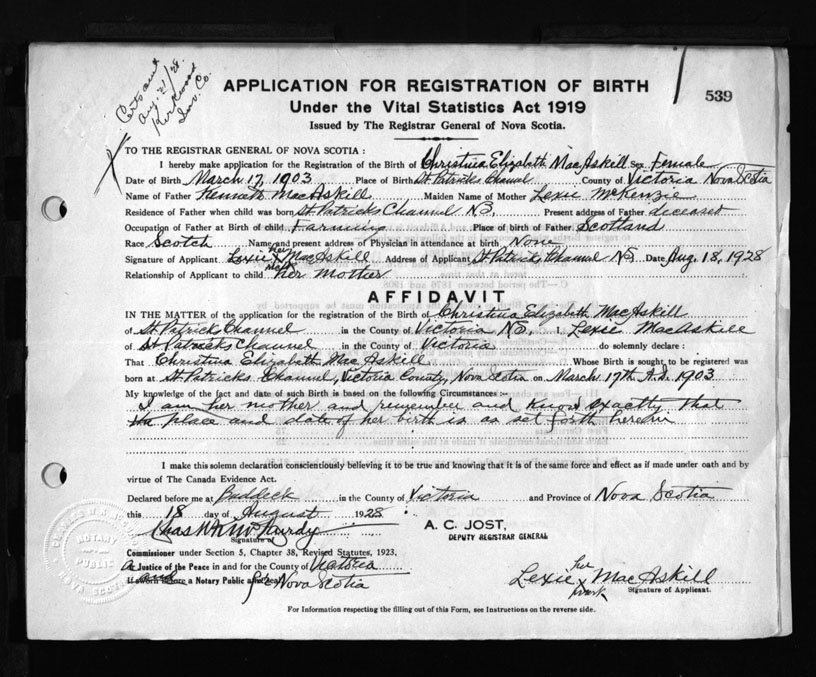 Certs sent
Aug. 21/28
Kirkwood
Ins. Co.
APPLICATION FOR REGISTRATION OF BIRTH
539
Under the Vital Statistics Act 1919
Issued by The Registrar General of Nova Scotia.
TO THE REGISTRAR GENERAL OF NOVA SCOTIA :
I hereby make application for the Registration of the Birth of Christina Elizabeth MacAskill Sex Female
Date of Birth March 17, 1903 Place of Birth St Patricks Channel County of Victoria Nova Scotia
Name of Father Kenneth MacAskill Maiden Name of Mother Lexie McKenzie
Residence of Father when child was born St Patricks Channel N.S. Present address of Father deceased
Occupation of Father at Birth of child Farming Place of birth of Father Scotland
Race Scotch Name and present address of Physician in attendance at birth None
Signature of Applicant Lexie her X mark MacAskill Address of Applicant St Patricks Channel N.S. Date Aug. 18, 1928
Relationship of Applicant to child her mother
AFFIDAVIT
IN THE MATTER of the application for the registration of the Birth of Christina Elizabeth MacAskill
of St Patricks Channel in the County of Victoria N.S. I, Lexie MacAskill
of St Patricks Channel in the County of Victoria do solemnly declare :
That Christina Elizabeth MacAskill Whose Birth is sought to be registered was
born at St Patricks Channel, Victoria County, Nova Scotia on March 17th A.D. 1903
My knowledge of the fact and date of such Birth is based on the following Circumstances :-
I am her mother and remember and know exactly that
the place and date of her birth is as set forth herein
I make this solemn declaration conscientiously believing it to be true and knowing that it is of the same force and effect as if made under oath and by
virtue of The Canada Evidence Act.
Declared before me at Baddeck in the County of Victoria and Province of Nova Scotia
this 18 day of August 1928
McCurdy
A. C. JOST,
Signature of
DEPUTY REGISTRAR GENERAL
Commissioner under Section 5, Chapter 38, Revised Statutes, 1923,
a Justice of the Peace in and for the County of Victoria
If sworn before a Notary Public affix seal for Nova Scotia
Lexie her X mark MacAskill
Signature of Applicant.
NOTARY
PUBLIC
For Information respecting the filling out of this Form, see Instructions on the reverse side.